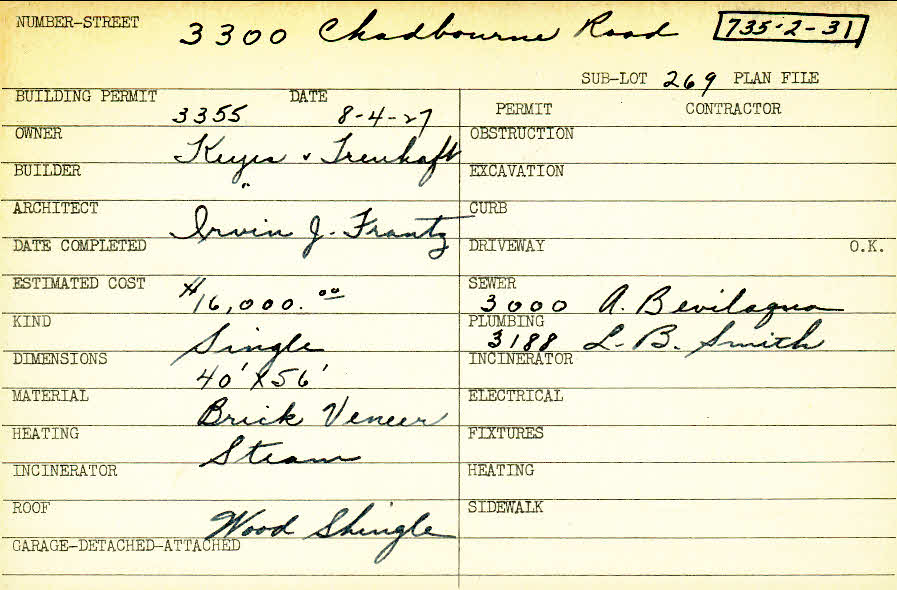 NUMBER-STREET 3300 Chadbourne Road 735-2-31
SUB-LOT 269 PLAN FILE
BUILDING PERMIT 3355 DATE 8-4-27
PERMIT CONTRACTOR
OWNER Keyes & Treuhaft
OBSTRUCTION
BUILDER "
EXCAVATION
ARCHITECT Irvin J. Frantz
CURB
DATE COMPLETED
DRIVEWAY O.K.
ESTIMATED COST $16,000.00
SEWER 3000 A. Bevilaqua
KIND Single
PLUMBING 3188 L. B. Smith
DIMENSIONS 40' X 56'
INCINERATOR
MATERIAL Brick Veneer
ELECTRICAL
HEATING Steam
FIXTURES
INCINERATOR
HEATING
ROOF Wood Shingle
SIDEWALK
GARAGE-DETACHED-ATTACHED